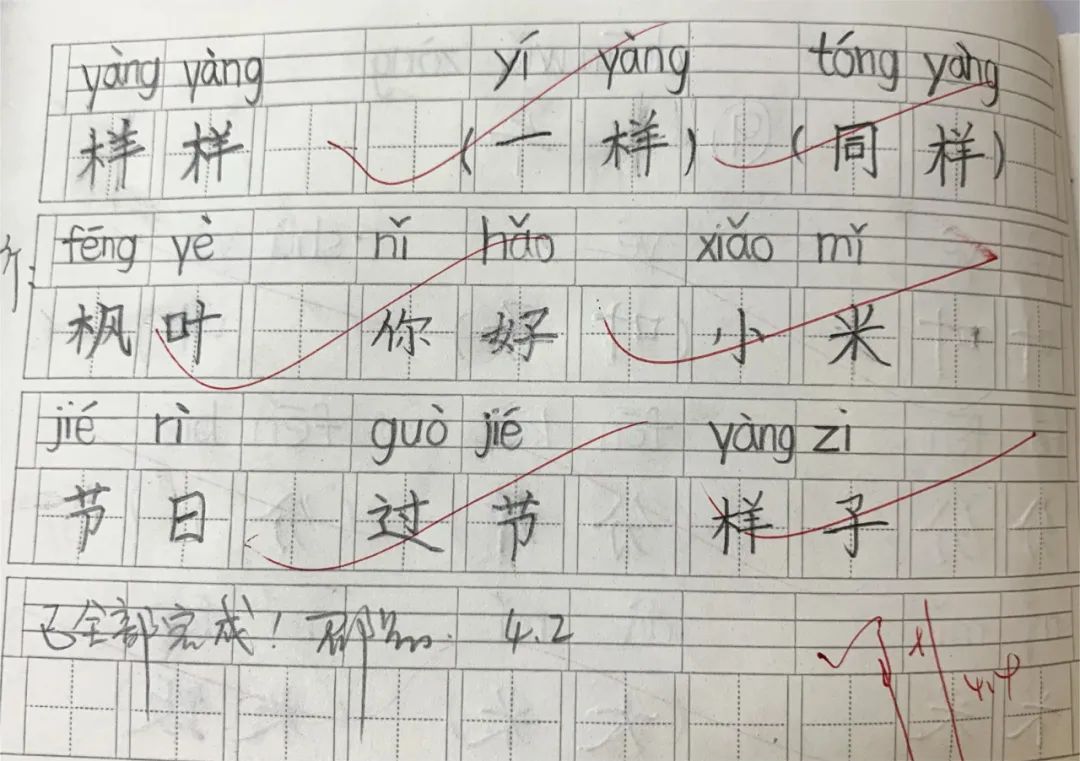 yàng yàng yí yàng tóng yàng
样 样 (一 样) (同 样)
fēng yè nǐ hǎo xiǎo mǐ
枫 叶 你 好 小 米
jié rì guò jié yàng zi
节 日 过 节 样 子
已全部完成! 4.2